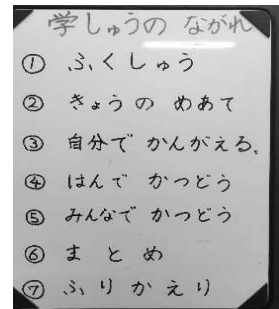 学しゅうの ながれ
① ふくしゅう
② きょうの めあて
③ 自分で かんがえる。
④ はんで かつどう
⑤ みんなで かつどう
⑥ まとめ
⑦ ふりかえり